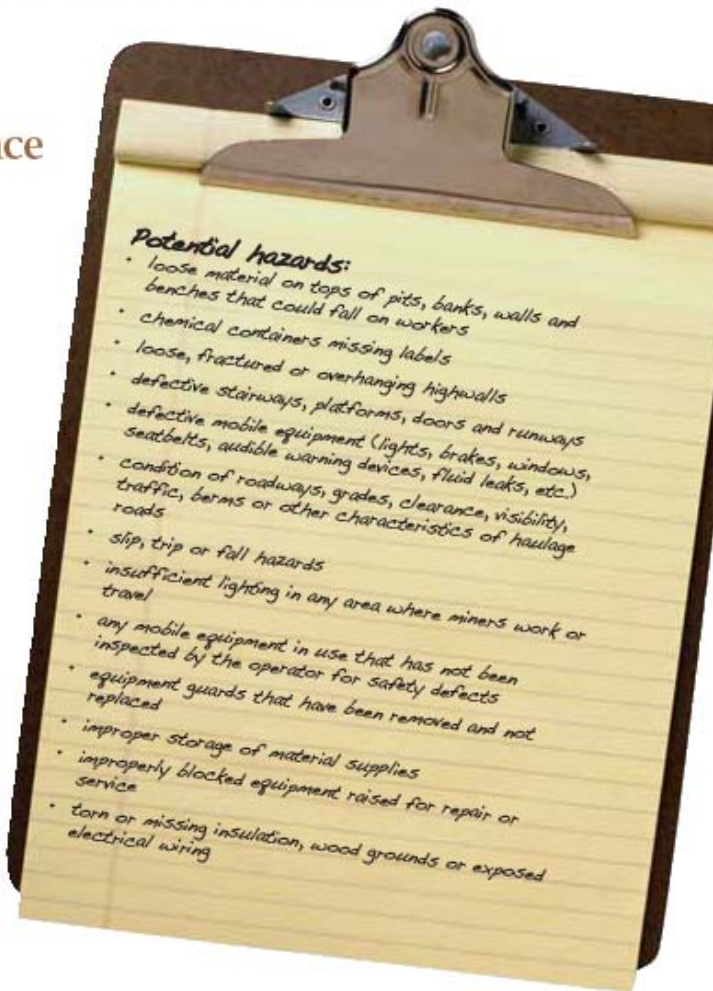 ce
Potential hazards:
• loose material on tops of pits, banks, walls and
benches that could fall on workers
• chemical containers missing labels
• loose, fractured or overhanging highwalls
• defective stairways, platforms, doors and runways
• defective mobile equipment (lights, brakes, windows,
seatbelts, audible warning devices, fluid leaks, etc.)
• condition of roadways, grades, clearance, visibility,
traffic, berms or other characteristics of haulage
roads
• slip, trip or fall hazards
• insufficient lighting in any area where miners work or
travel
• any mobile equipment in use that has not been
inspected by the operator for safety defects
• equipment guards that have been removed and not
replaced
• improper storage of material supplies
• improperly blocked equipment raised for repair or
service
• torn or missing insulation, wood grounds or exposed
electrical wiring